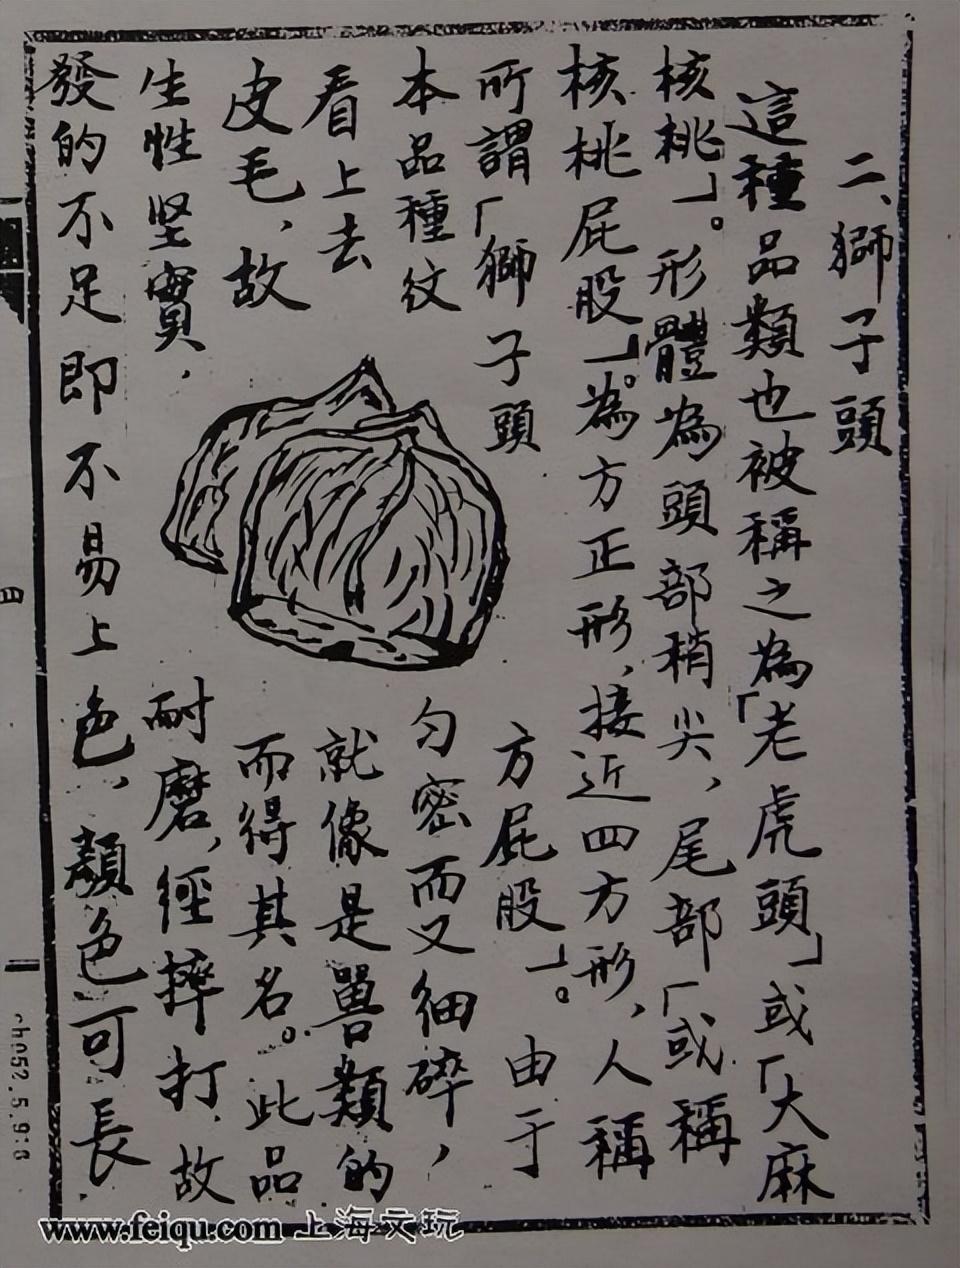 二、獅子頭
這種品類也被稱之為「老虎頭」或「大麻
核桃」。形體為頭部稍尖，尾部「或稱
核桃屁股」。為方正形、接近四方形，人稱
所謂「獅子頭方屁股」。由于
本品種纹匀密而又细碎，
看上去就像是嘼類的
皮毛，故而得其名。此品
生性坚實，耐磨，經摔打，故
發的不足即不易上色，顏色可長
四
www.feiqu.com 上海文玩